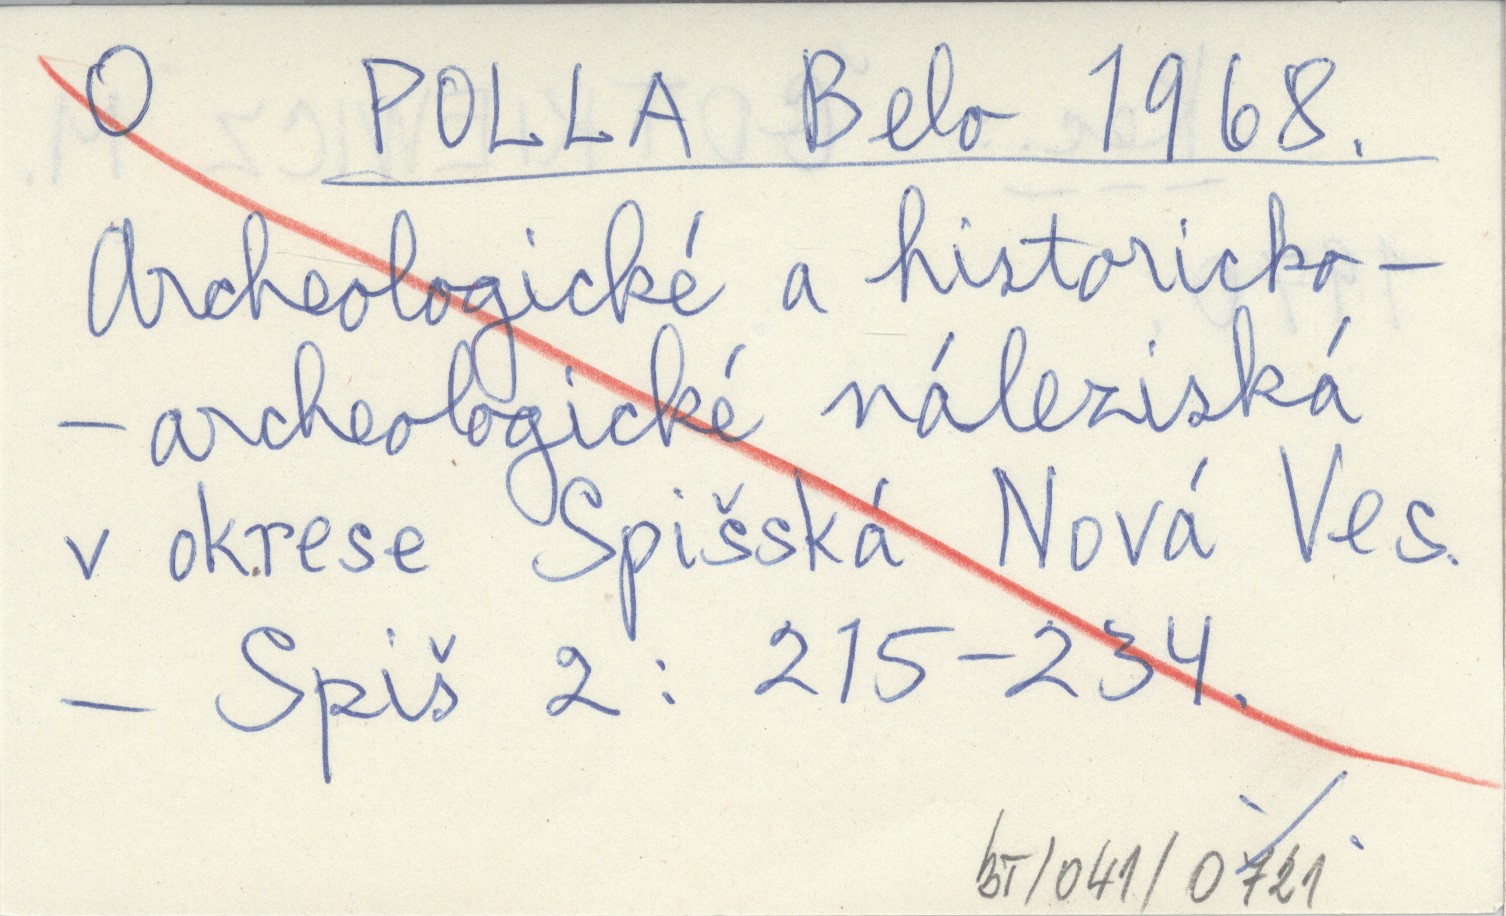 O POLLA Belo 1968.
Archeologické a historicko-
-archeologické náleziská
v okrese Spišská Nová Ves.
- Spiš 2: 215-234.
BT/041/0721